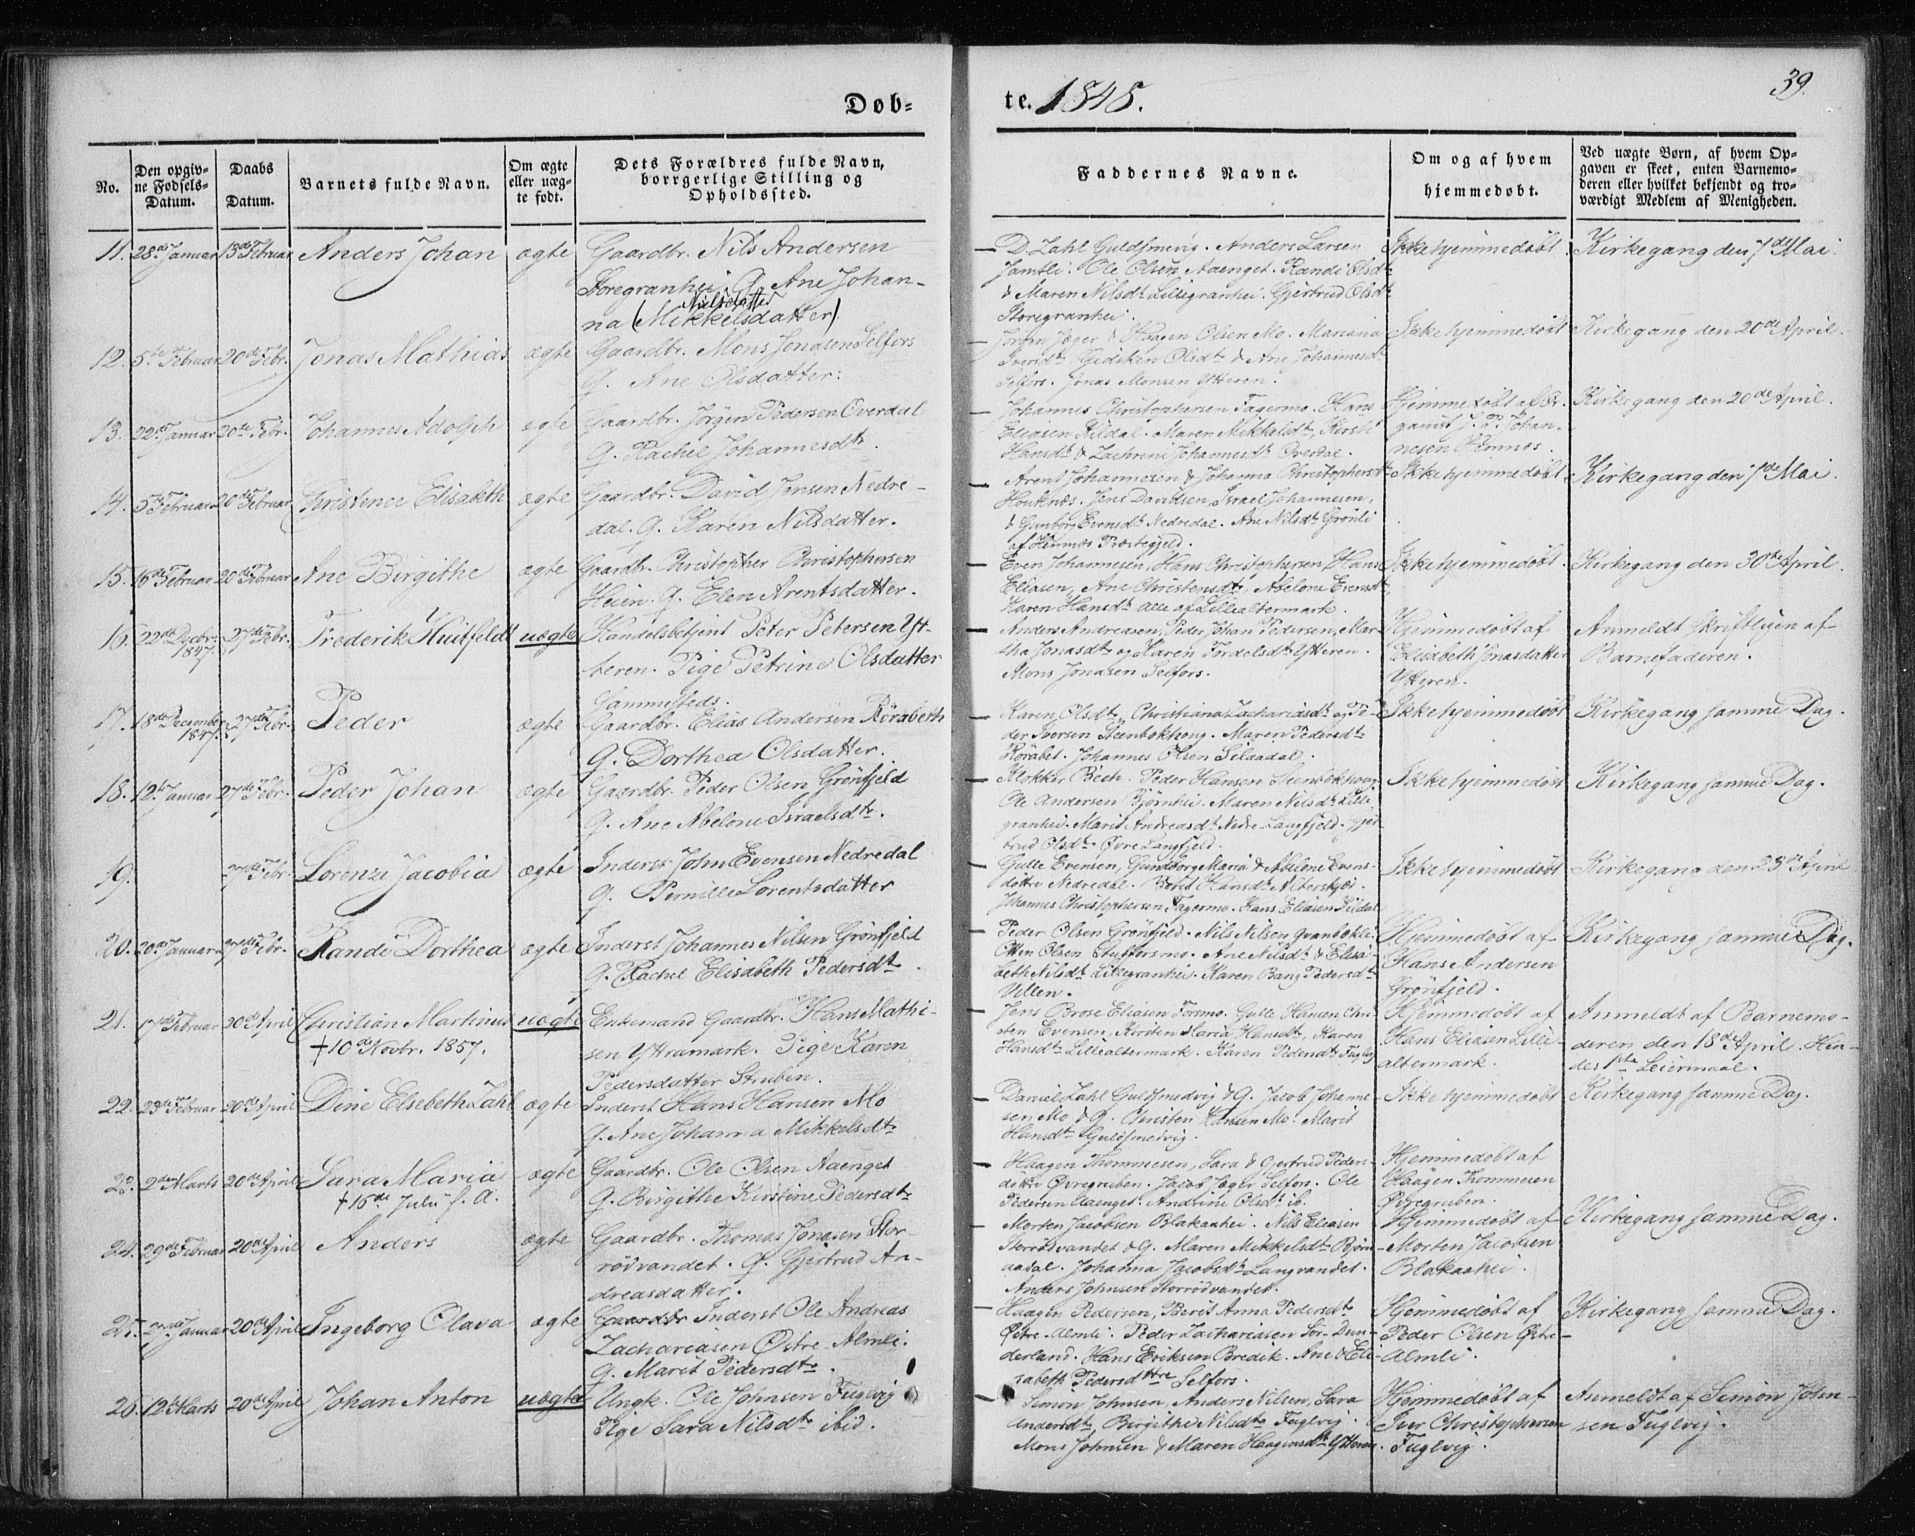 39.
Døb= te. 1848.
No.
Den opgiv-
ne Fødsels-
Datum.
Daabs
Datum.
Barnets fulde Navn.
Om ægte
eller uæg-
te født.
Dets Forældres fulde Navn,
borrgerlige Stilling og
Opholdssted.
Faddernes Navne.
Om og af hvem
hjemmedøbt.
Ved uægte Børn, af hvem Op-
gaven er skeet, enten Barnemo-
deren eller hvilket bekjendt og tro-
værdigt Medlem af Menigheden.
11. 28de Januar 13de Februar Anders Johan ægte
Gaardbr. Nils Andersen
Storegranhei. G. Ane Johan-
Nilsdatter
na (Mikkelsdatter)
D. Zahl Guldsmevig. Anders Larsen
Jamtli. Ole Olsen Aaenget. Randi Olsdtr
& Maren Nilsdtr Lillegranhei. Gjertrud Olsdtr
Storegranhei.
Ikke hjemmedøbt.
Kirkegang den 7de Mai.
12. 5te Februar 20de Febr. Jonas Mathias ægte
Gaardbr. Mons Jonasen Selfors
G. Ane Olsdatter.
Jørgen Jæger & Haagen Olsen Mo. Mariana
Iversdtr Gidiken Olsdtr & Ane Johannesdtr
Selfors. Jonas Monsen Ytteren.
Ikke hjemmedøbt
Kirkegang den 20de April.
13. 22de Januar 20de Febr. Johannes Adolph ægte
Gaardbr. Jørgen Pedersen Overdal
G. Rachel Johannesdtr.
Johannes Christophersen Fagermo. Hans
Eliasen Kildal. Maren Mikkelsdtr, Kirsti
Hansdtr & Zachrini Johannesdtr Overdal.
Hjemmedøbt af Or-
ganist J. P. Johan-
nesen Hemnes.
Kirkegang den 20de April.
14. 5te Februar 20de Februar Christence Elisabeth ægte
Gaardbr. David Jensen Nedre-
dal. G. Karen Nilsdatter.
Arent Johannesen & Johanna Christophersdtr
Houknæs. Jens Davidsen, Israel Johannesen,
& Gunbor Evensdtr Nedredal. Ane Nilsdtr Grønli
af Hemnæs Præstegjeld.
Ikke hjemmedøbt
Kirkegang den 7de Mai.
15. 16de Februar 20de Februar Ane Birgithe ægte
Gaardbr. Christopher Christophersen
Heien. G. Elen Arentsdatter.
Even Johannesen, Hans Christophersen, Hans
Eliasen, Ane Christensdtr, Abelone Evensdtr,
Karen Hansdtr alle af Lillealtermark.
Ikke hjemmedøbt.
Kirkegang den 30te April.
16. 22de Decbr. 1847. 27de Febr. Frederik Huitfeldt uægte
Handelsbetjent Peter Petersen Yt-
teren. Pige Petrine Olsdatter
sammesteds.
Anders Andreasen, Peder Johan Pedersen, Mar-
tha Jonasdtr og Karen Tordelsdtr Ytteren.
Mons Jonasen Selfors.
Hjemmedøbt af
Elisabeth Jonasdatter
Ytteren.
Anmeldt skriftligen af
Barnefaderen.
17. 18de December 1847. 27de Febr. Peder ægte
Gaardbr. Elias Andersen Rørabeth
G. Dorthea Olsdatter.
Karen Olsdtr, Christiana Zachariasdtr og Pe-
der Iversen Stenbokhoug. Maren Pedersdtr
Rørabet. Johannes Olsen Silaadal.
Ikke hjemmedøbt
Kirkegang samme Dag.
18. 12te Januar 27de Febr. Peder Johan ægte
Gaardbr. Peder Olsen Grønfjeld
G. Ane Abelone Israelsdtr.
Klokker Bech. Peder Hansen Stenbokhoug
Ole Andersen Bjørnhei. Maren Nilsdtr Lille-
granhei. Marit Andreasdtr Nedre-Langfjeld. Gjer-
trud Olsdtr Øvre Langfjeld.
Ikke hjemmedøbt
Kirkegang samme Dag.
19. 27de Febr. Lorenze Jacobia ægte
Inderst John Evensen Nedredal
G. Pernille Lorentsdatter
Gulle Evensen, Gundborg Maria & Abelone Evens-
døttre Nedredal. Hansdtr Alterskjær.
Johannes Christophersen Fagermo. Hans Eliasen Kildal
Ikke hjemmedøbt
Kirkegang den 23de April
20. 20de Januar 27de Febr. Randi Dorthea ægte
Inderst Johannes Nilsen Grønfjeld
G. Rachel Elisabeth Pedersdtr.
Peder Olsen Grønfjeld. Nils Nilsen Granbakli.
Otten Olsen Stufforsmo. Ane Nilsdtr & Elisa-
beth Nilsdtr Lillegranhei. Karen Bang Pedersdtr
Villen.
Hjemmedøbt af
Hans Andersen
Grønfjeld.
Kirkegang samme Dag.
21. 17de Februar 20de April Christian Martinus uægte
+ 10de Novbr. 1857.
Enkemand Gaardbr. Hans Mathi-
sen Yttramark. Pige Karen
Pedersdatter Struben.
Jens Brose Eliasen Formo. Gulle Hansen Chri-
sten Evensen, Kirsten Maria Hansdtr, Karen
Hansdtr Lillealtermark. Karen Pedersdtr Fuglvig
Hjemmedøbt af
Hans Eliasen Lille-
altermark.
Anmeldt af Barnemo-
deren den 18de April. Hen-
des 1ste Leiermaal.
22. 23de Februar 20de April Dine Elsebeth Zahl ægte
Inderst Hans Hansen Mo
G. Ane Johanna Mikkelsdtr
Daniel Zahl Guldsmedvig & G. Jacob Johanne-
sen Mo & G. Christen Hansen Mo. Marit
Hansdtr Guldsmedvig.
Ikke hjemmedøbt
Kirkegang samme Dag.
23. 2den Marts 20de April Sara Maria ægte
+ 16de Julii s. A.
Gaardbr. Ole Olsen Aaenget
G. Birgithe Kirstine Pedersdtr
Haagen Thommesen, Sara & Gjertrud Peders-
døttre Øvregruben. Jacob Jæger Selfors. Ole
Pedersen Aaenget. Andrine Olsdtr ib.
Hjemmedøbt af
Haagen Thommesen
Øvregruben.
24. 29de Februar 20de April Anders ægte
Gaardbr. Thomas Jonasen Stor-
rødvandet. G. Gjertrud An-
dreasdatter.
Morten Jacobsen Blakaahei. Nils Eliasen
Storrødvandet & G. Maren Mikkelsdtr Bjørn-
aadal. Johanna Jacobsdtr Langvandet.
Anders Johnsen Storrødvandet.
Hjemmedøbt af
Morten Jacobsen
Blakaahei.
Kirkegang samme Dag.
25. 27de Januar 20de April Ingeborg Olava ægte
Gaardbr Inderst Ole Andreas
Zachariasen Østre Almli.
G. Maret Pedersdtr.
Haagen Pedersen, Berit Anna Pedersdtr
Østre-Almli. Peder Zachariasen Sør-Dun-
derland. Hans Eriksen Bredik. Ane & Eli-
sabeth Pedersdttre Selfors.
Hjemmedøbt af
Peder Olsen Østre-
Almli.
Kirkegang samme Dag.
26. 12te Marts 20de April Johan Anton uægte
Ungk. Ole Johnsen Fuglvig
Pige Sara Nilsdtr ibid.
Simon Johnsen, Anders Nilsen, Sara
Andersdtr Birgithe Nilsdtr Fuglvig.
Mons Johnsen & Maren Haagensdtr Ytteren.
Hjemmedøbt af
Iver Christophersen
Fuglvig.
Anmeldt af Simon John-
sen Fuglvig.